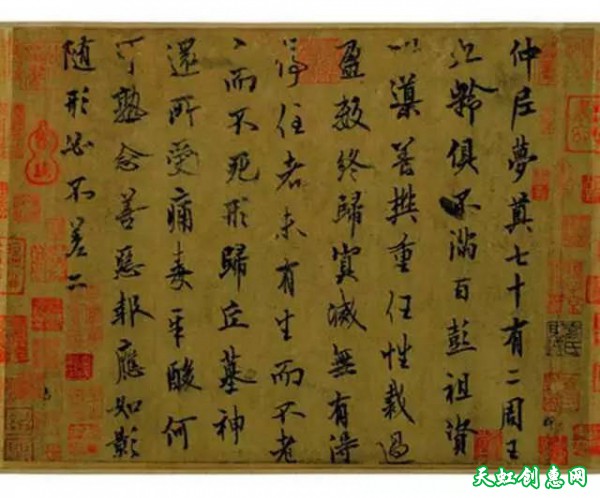 仲尼夢奠七十有二周王
九齡俱不滿百彭祖資
以導養樊重任性裁過
盈數終歸冥滅無有得
停住者未有生而不老
而不死形歸丘墓神
還所受痛毒辛酸何
可熟念善惡報應如影
隨形必不差二
天虹创惠网